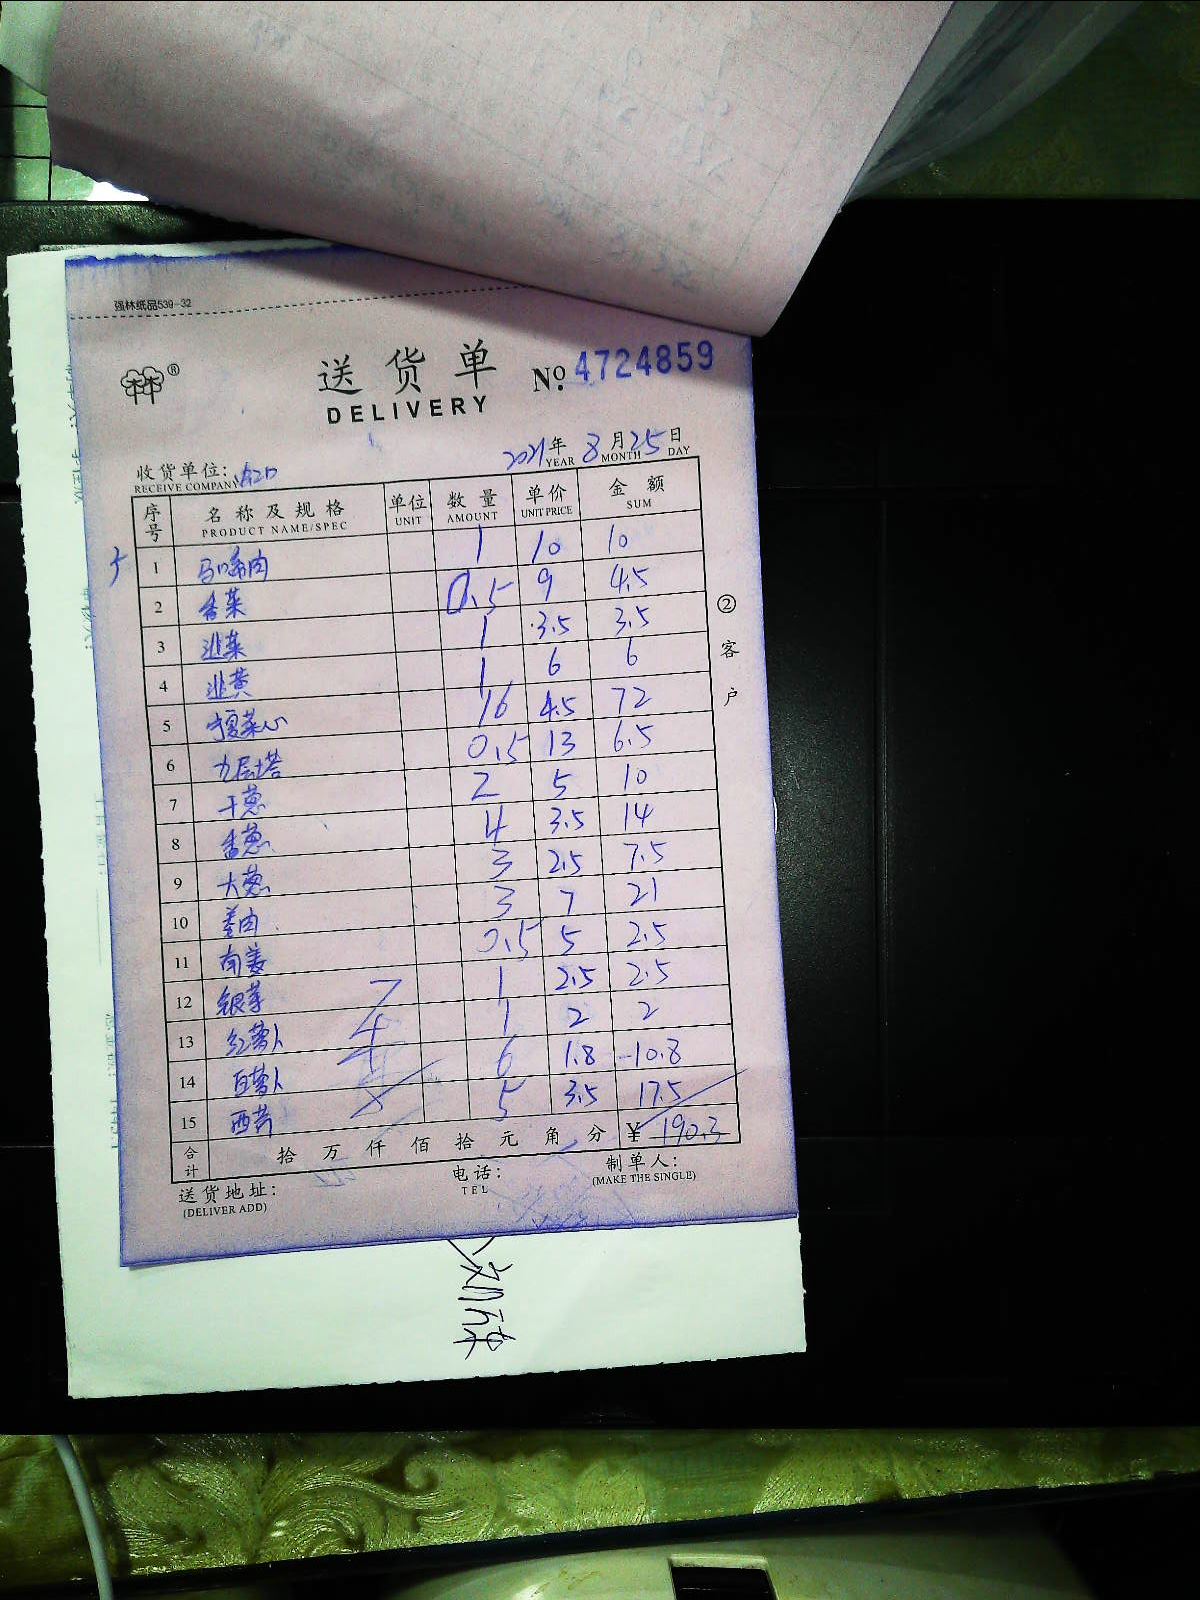 强林纸品539-32
林®
送货单 No. 4724859
DELIVERY
2021年 8月25日
YEAR MONTH DAY
收货单位:
RECEIVE COMPANY
序号 名称及规格 单位 数量 单价 金额
PRODUCT NAME/SPEC UNIT AMOUNT UNIT PRICE SUM
1 马蹄肉 1 10 10
2 香菜 0.5 9 4.5
3 韭菜 1 3.5 3.5
4 韭黄 1 6 6
5 宁夏菜心 16 4.5 72
6 九层塔 0.5 13 6.5
7 干葱 2 5 10
8 香葱 4 3.5 14
9 大葱 3 2.5 7.5
10 姜肉 3 7 21
11 南姜 0.5 5 2.5
12 银芽 1 2.5 2.5
13 红萝卜 1 2 2
14 白萝卜 6 1.8 10.8
15 西芹 5 3.5 17.5
合计 拾万仟佰拾元角分 ¥ 190.3
送货地址: 电话: 制单人:
(DELIVER ADD) TEL (MAKE THE SINGLE)
②客户